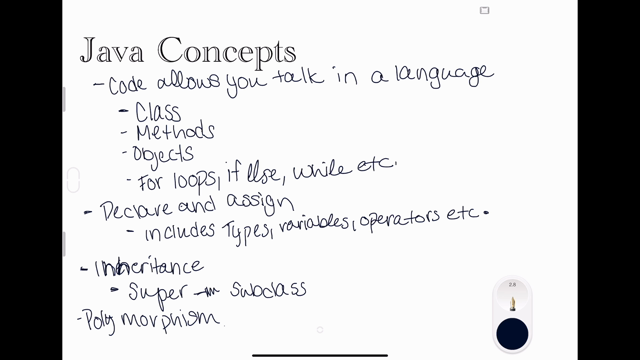 Java Concepts
- Code allows you talk in a language
- Class
- Methods
- Objects
- For loops, if else, while etc.
- Declare and assign
- includes Types, variables, operators etc.
- Inheritance
- Super → subclass
- Polymorphism
2.8